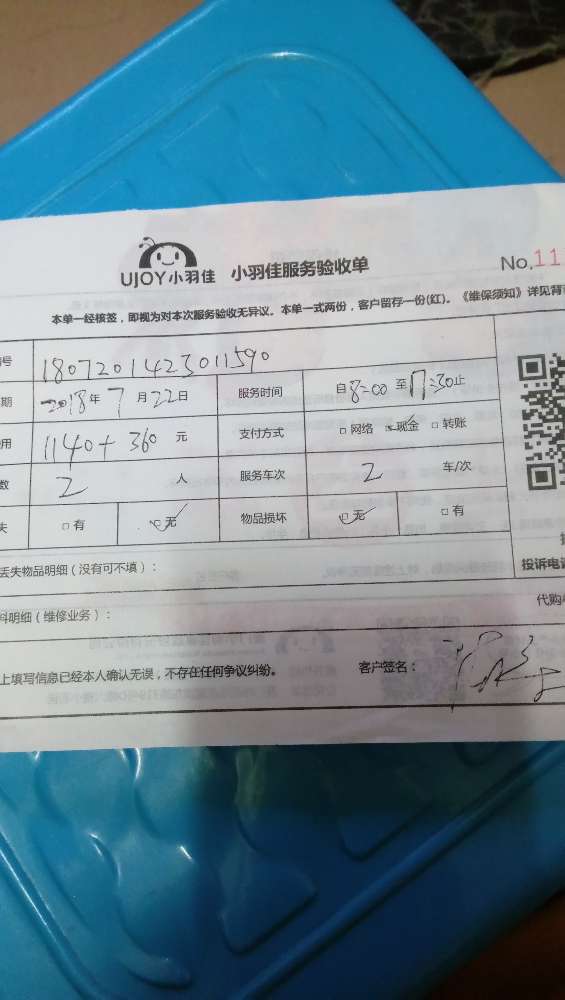 UJOY小羽佳 小羽佳服务验收单 No.11
本单一经核签，即视为对本次服务验收无异议。本单一式两份，客户留存一份(红)。《维保须知》详见背
号 1807201423011590
期 2018年7月22日 服务时间 自8:00至17:30止
用 1140+360元 支付方式 □网络 ☑现金 □转账
数 2人 服务车次 2车/次
失 □有 ☑无 物品损坏 ☑无 □有
投诉电话
丢失物品明细（没有可不填）：
代购
料明细（维修业务）：
上填写信息已经本人确认无误，不存在任何争议纠纷。 客户签名：